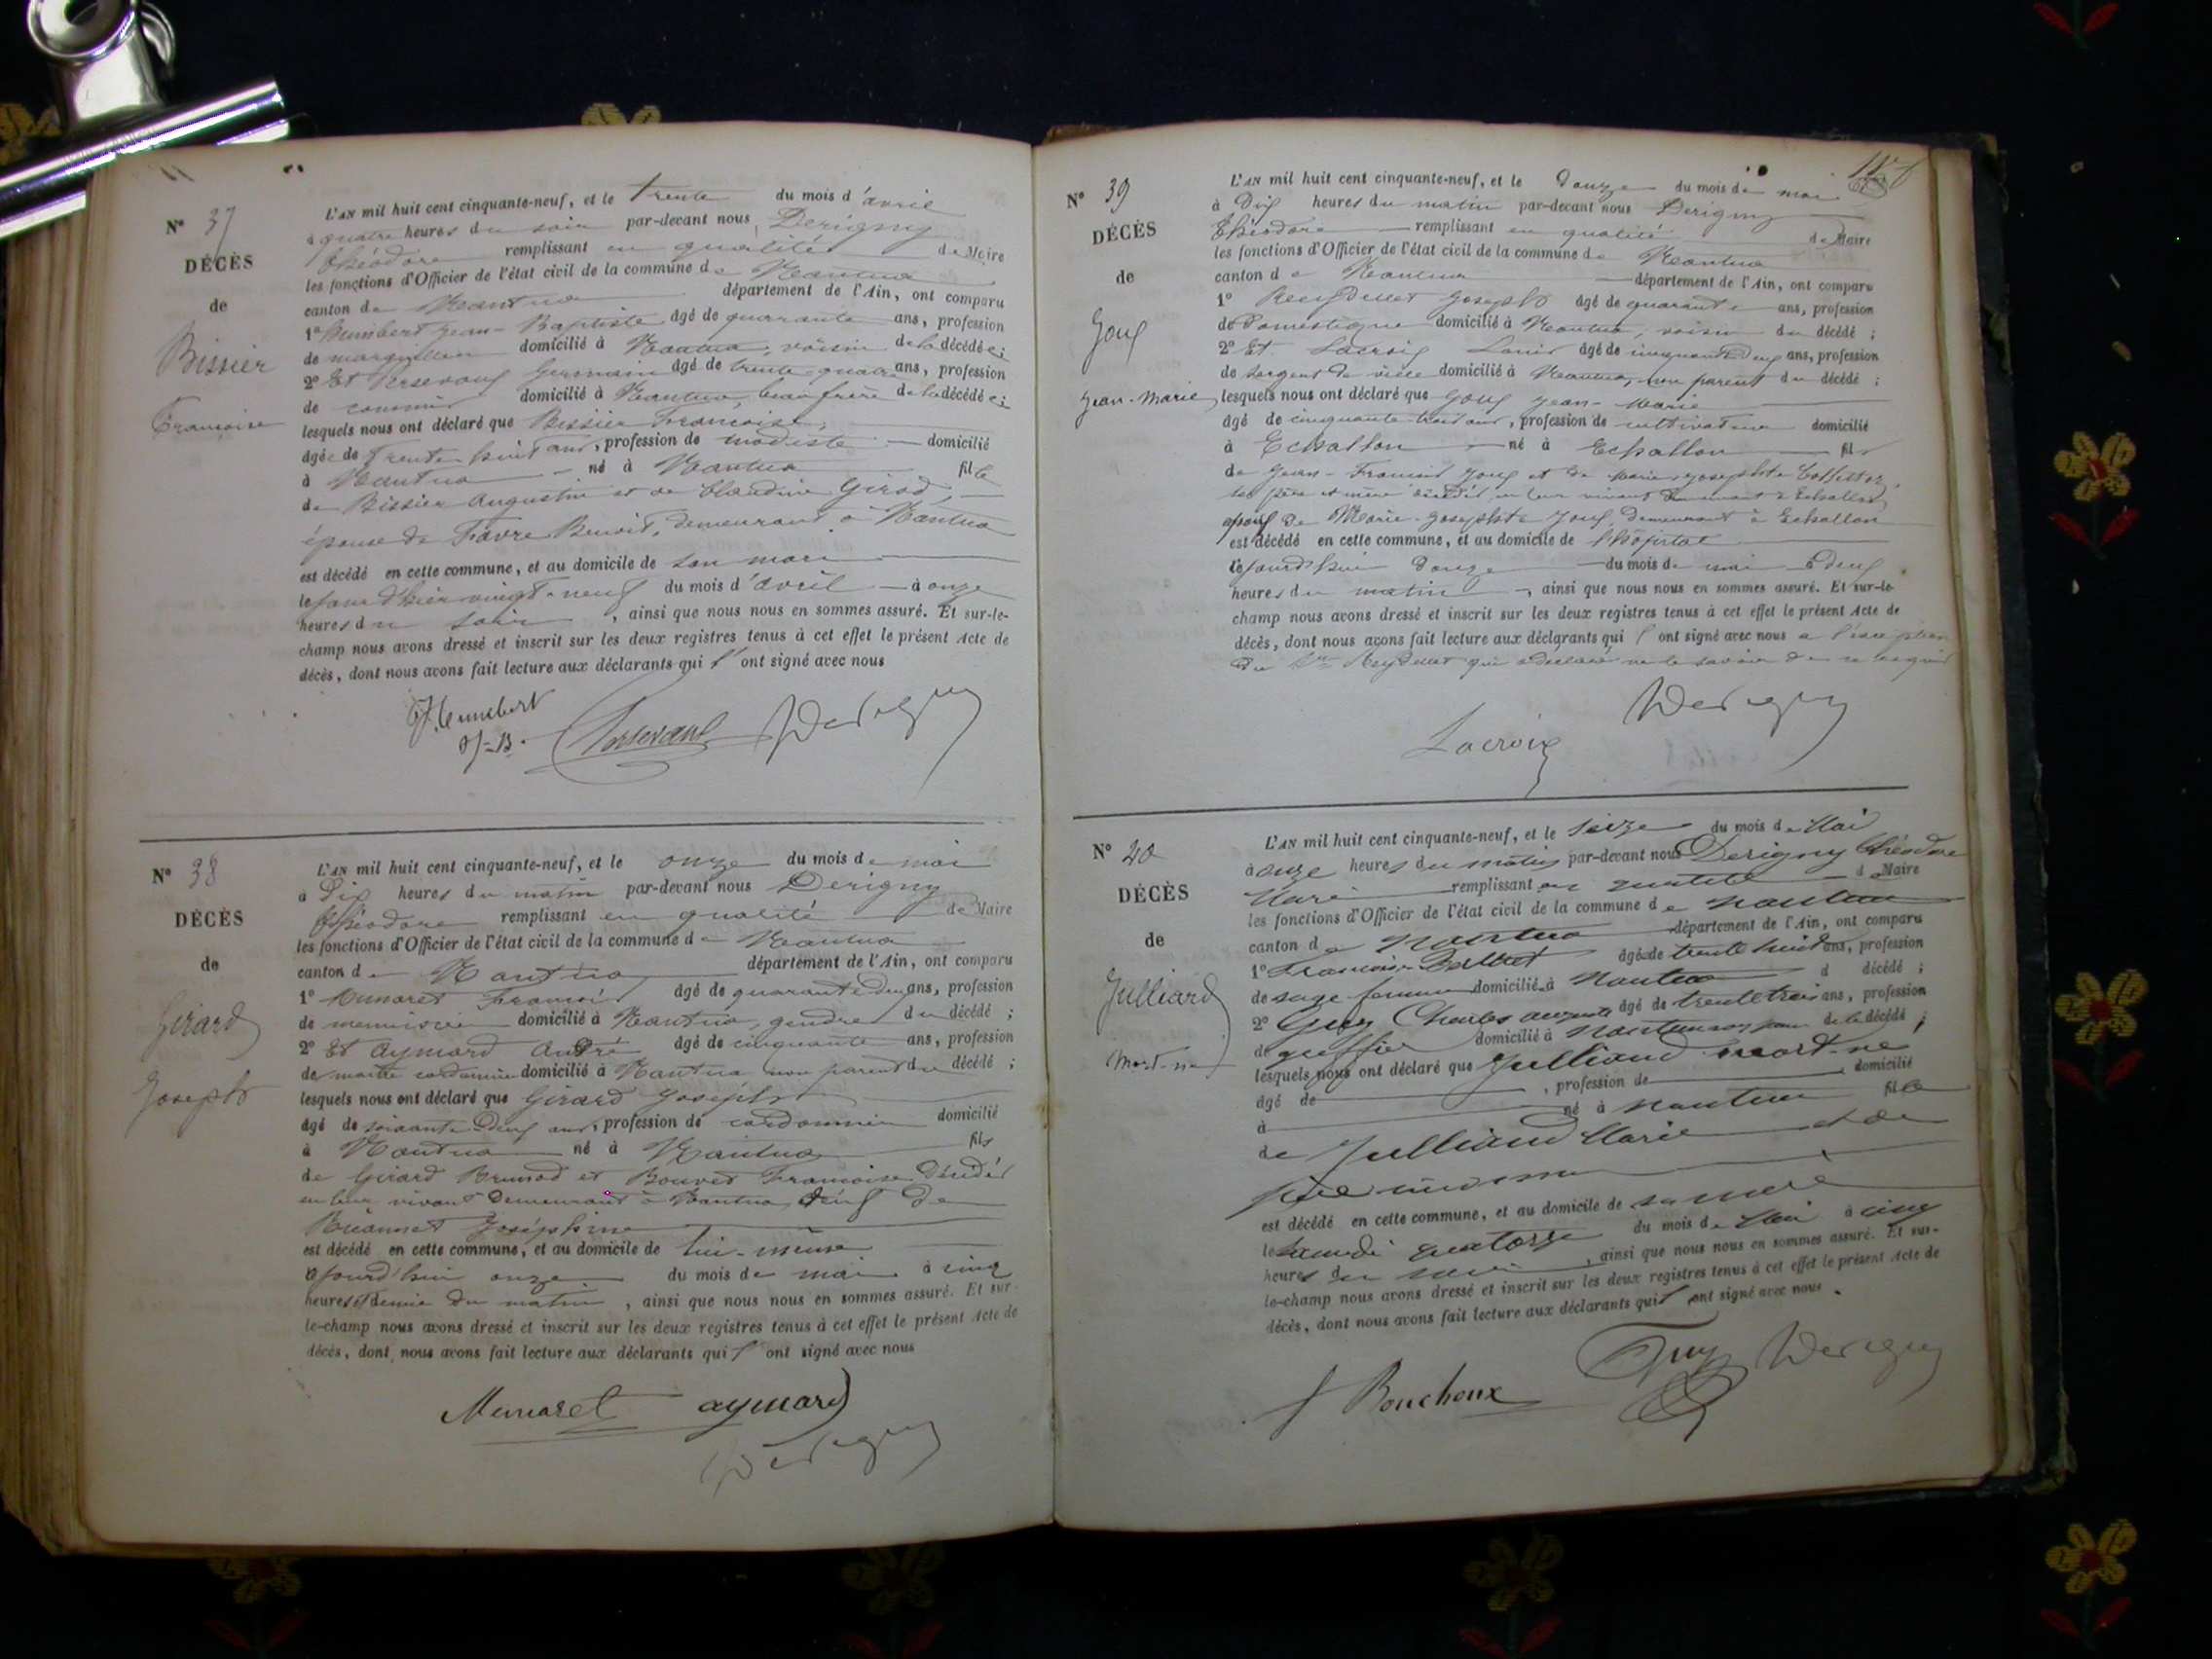 N° 37
DÉCÈS
de
Bissier
Françoise
L'AN mil huit cent cinquante-neuf, et le trente du mois d'avril
à quatre heures du soir par-devant nous Derigny
Théodore remplissant en qualité de Maire
les fonctions d'Officier de l'état civil de la commune de Nantua
canton de Nantua département de l'Ain, ont comparu
1° Humbert Jean-Baptiste âgé de quarante ans, profession
de marguillier domicilié à Nantua, voisin de la décédée;
2° Et Persevaux Germain âgé de trente-quatre ans, profession
de commis domicilié à Nantua, beau frère de la décédée;
lesquels nous ont déclaré que Bissier Françoise,
âgée de Trente-huit ans, profession de modiste domicilié
à Nantua né à Nantua fille
de Bissier Augustin et de Claudine Girod,
épouse de Favre Benoit, demeurant à Nantua
est décédé en cette commune, et au domicile de son mari
le jour d'hier vingt-neuf du mois d'avril à onze
heures du soir, ainsi que nous nous en sommes assuré. Et sur-le-
champ nous avons dressé et inscrit sur les deux registres tenus à cet effet le présent Acte de
décès, dont nous avons fait lecture aux déclarants qui l'ont signé avec nous
Humbert
J-B. Derigny
N° 38
DÉCÈS
de
Girard
Joseph
L'AN mil huit cent cinquante-neuf, et le onze du mois de mai
à Dix heures du matin par-devant nous Derigny
Théodore remplissant en qualité de Maire
les fonctions d'Officier de l'état civil de la commune de Nantua
canton de Nantua département de l'Ain, ont comparu
1° Munaret François âgé de quarante deux ans, profession
de menuisier domicilié à Nantua, gendre du décédé;
2° Et Aymard André âgé de cinquante ans, profession
de maître cordonnier domicilié à Nantua non parent du décédé;
lesquels nous ont déclaré que Girard Joseph
âgé de soixante Deux ans, profession de cordonnier domicilié
à Nantua né à Nantua fils
de Girard Brunod et Bouvet Françoise Décédés
en leur vivant demeurant à Nantua, veuf de
Joséphine
est décédé en cette commune, et au domicile de lui-même
le jourd'hui onze du mois de mai à cinq
heures et demie du matin, ainsi que nous nous en sommes assuré. Et sur-
le-champ nous avons dressé et inscrit sur les deux registres tenus à cet effet le présent Acte de
décès, dont nous avons fait lecture aux déclarants qui l'ont signé avec nous
Munaret aymard
Derigny
N° 39
DÉCÈS
de
Joux
Jean-Marie
L'AN mil huit cent cinquante-neuf, et le Douze du mois de mai
à Dix heures du matin par-devant nous Derigny
Théodore remplissant en qualité de Maire
les fonctions d'Officier de l'état civil de la commune de Nantua
canton de Nantua département de l'Ain, ont comparu
1° Reydellet Joseph âgé de quarante ans, profession
de Domestique domicilié à Nantua, voisin du décédé;
2° Et Lacroix Louis âgé de cinquante deux ans, profession
de sergent de ville domicilié à Nantua, non parent du décédé;
lesquels nous ont déclaré que Joux Jean-Marie
âgé de cinquante trois ans, profession de cultivateur domicilié
à Echallon né à Echallon fils
de Jean-François Joux et de Marie Josephte
ses père et mère décédés en leur vivant demeurant à Echallon,
époux de Marie-Josephte Joux, demeurant à Echallon
est décédé en cette commune, et au domicile de l'hôpital
le jourd'hui Douze du mois de mai à deux
heures du matin, ainsi que nous nous en sommes assuré. Et sur-le-
champ nous avons dressé et inscrit sur les deux registres tenus à cet effet le présent Acte de
décès, dont nous avons fait lecture aux déclarants qui l'ont signé avec nous à l'exception
du Sr Reydellet qui a déclaré ne le savoir de ce requis
Derigny
Lacroix
N° 40
DÉCÈS
de
Julliard
Mort-né
L'AN mil huit cent cinquante-neuf, et le seize du mois de Mai
à onze heures du matin par-devant nous Derigny Théodore
Maire remplissant en qualité de Maire
les fonctions d'Officier de l'état civil de la commune de Nantua
canton de Nantua département de l'Ain, ont comparu
1° Françoise âgée de trente huit ans, profession
de sage femme domicilié à Nantua d décédé;
2° Guy Charles auguste âgé de trente trois ans, profession
de greffier domicilié à Nantua non parent de la décédé;
lesquels nous ont déclaré que Julliard mort-né
âgé de , profession de domicilié
à né à Nantua fille
de Julliard Marie et de
père inconnu
est décédé en cette commune, et au domicile de sa mère
le samedi quatorze du mois de Mai à cinq
heures du soir, ainsi que nous nous en sommes assuré. Et sur-
le-champ nous avons dressé et inscrit sur les deux registres tenus à cet effet le présent Acte de
décès, dont nous avons fait lecture aux déclarants qui l'ont signé avec nous.
f Bouchoux Guy Derigny